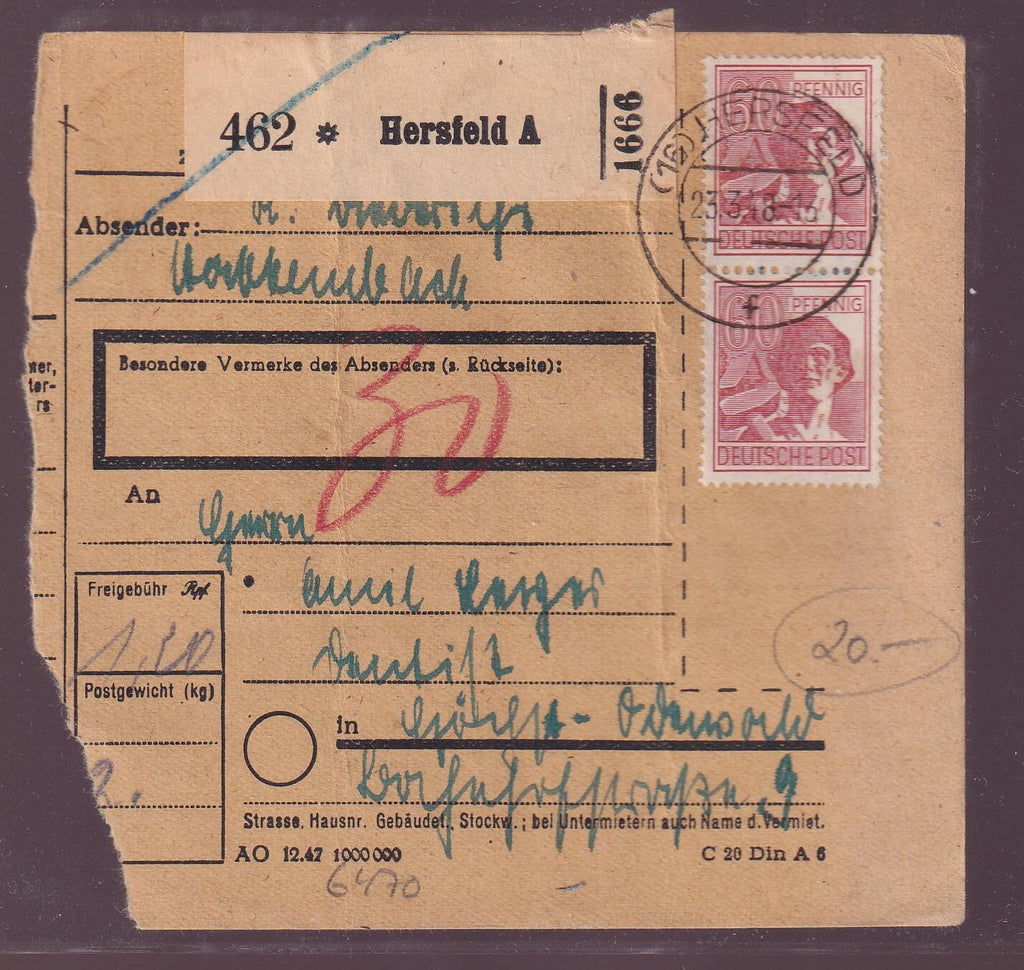 462 * Hersfeld A
1666
60 PFENNIG
DEUTSCHE POST
(16) HERSFELD
23.3.48.-13
f
60 PFENNIG
DEUTSCHE POST
Absender:
Besondere Vermerke des Absenders (s. Rückseite):
wer,
ter-
rs
An
Herrn
Emil Berger
Dentist
in Höchst-Odenwald
Bahnhofstraße 9
Strasse, Hausnr. Gebäudet., Stockw.; bei Untermietern auch Name d. Vermiet.
Freigebühr Rpf
1,50
Postgewicht (kg)
2.
20.-
AO 12.47 1000000
C 20 Din A 6
6470